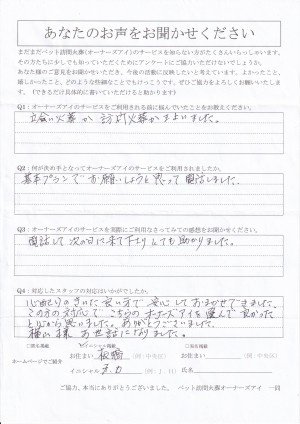 あなたのお声をお聞かせください
まだまだペット訪問火葬(オーナーズアイ)のサービスを知らない方がたくさんいらっしゃいます。
その方たちに少しでも知っていただくためにアンケートにご協力いただけないでしょうか。
あなた様のご意見をお聞かせいただき、今後の活動に反映したいと考えています。よかったこと、
嬉しかったこと、どのような些細なことでもけっこうです。ぜひご協力をよろしくお願いいたしま
す。(できるだけ具体的に書いていただけると助かります)
Q1：オーナーズアイのサービスをご利用される前に悩んでいたことをお教えください。
立会い火葬か訪問火葬かまよいました。
Q2：何が決め手となってオーナーズアイのサービスをご利用されましたか。
基本プランでお願いしようと思って電話しました。
Q3：オーナーズアイのサービスを実際にご利用されてみての感想をお聞かせください。
電話して次の日に来て下さりとても助かりました。
Q4：対応したスタッフの対応はいかがでしたか。
心配りのきいた良い方で安心しておまかせできました。
この方の対応で こちらのオーナーズアイを選んで良かった
と心から思いました。ありがとうございました。
様 お世話になりました。
イニシャル掲載
ホームページでご紹介
お住まい 板橋
お住まい
イニシャル
氏名
ご協力、本当にありがとうございました。 ペット訪問火葬オーナーズアイ 一同